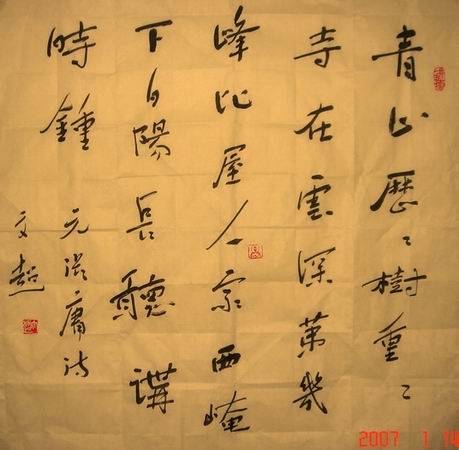 青山歷〻樹重〻
寺在雲深第幾
峰比屋人家西崦
下夕陽長聽講
時鍾
元張庸诗
文超
2007 1 14